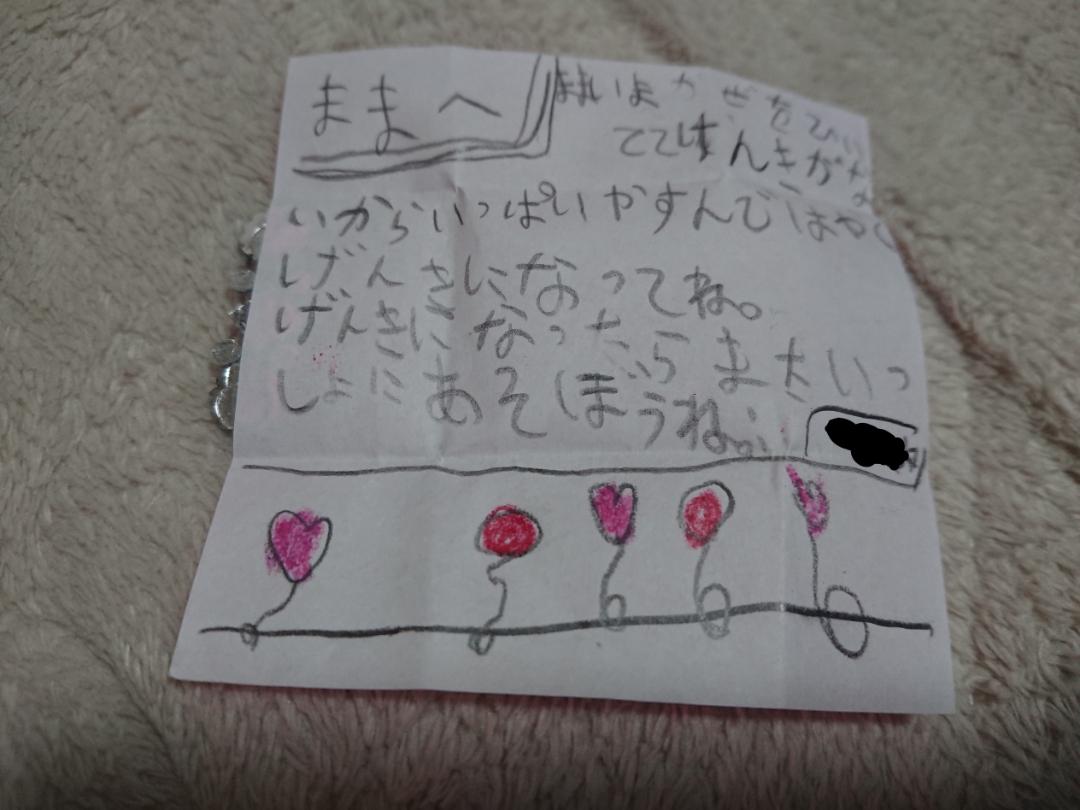 ままへ
ままいまかぜをひい
ててげんきがな
いからいっぱいやすんではやく
げんきになってね。
げんきになったらまたいっ
しょにあそぼうね。